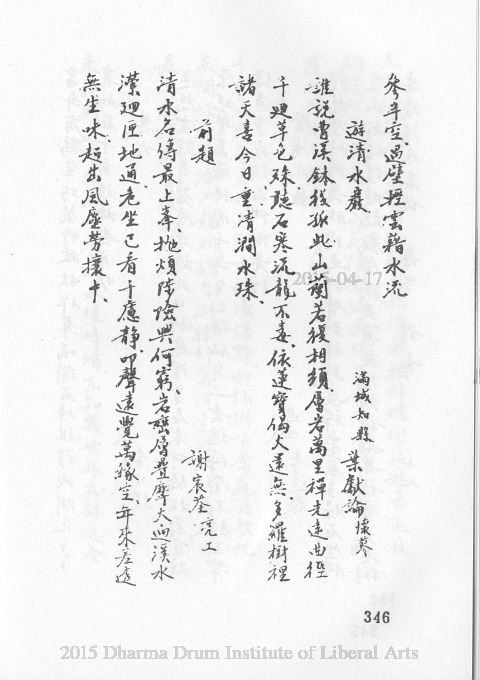 參辛空過壁輕雲藉水流
遊清水巖
滿城知縣 葉獻論 懷摹
誰說曹溪鉢後孤此山蘭若復相類層岩萬里禪光遠曲徑
千迴草色殊聽石寒流龍不毒依蓮寶偈火還無多羅樹裡
諸天喜今日重清澗水珠
前題
謝宸荃 亮工
清水名傳最上峯拋煩陟險興何窮岩巒層疊摩天逈溪水
瀠迴匝地通危坐已看千慮靜叩聲遠覺萬緣空年來差透
無生味超出風塵勞攘中
346
2015-04-17
2015 Dharma Drum Institute of Liberal Arts